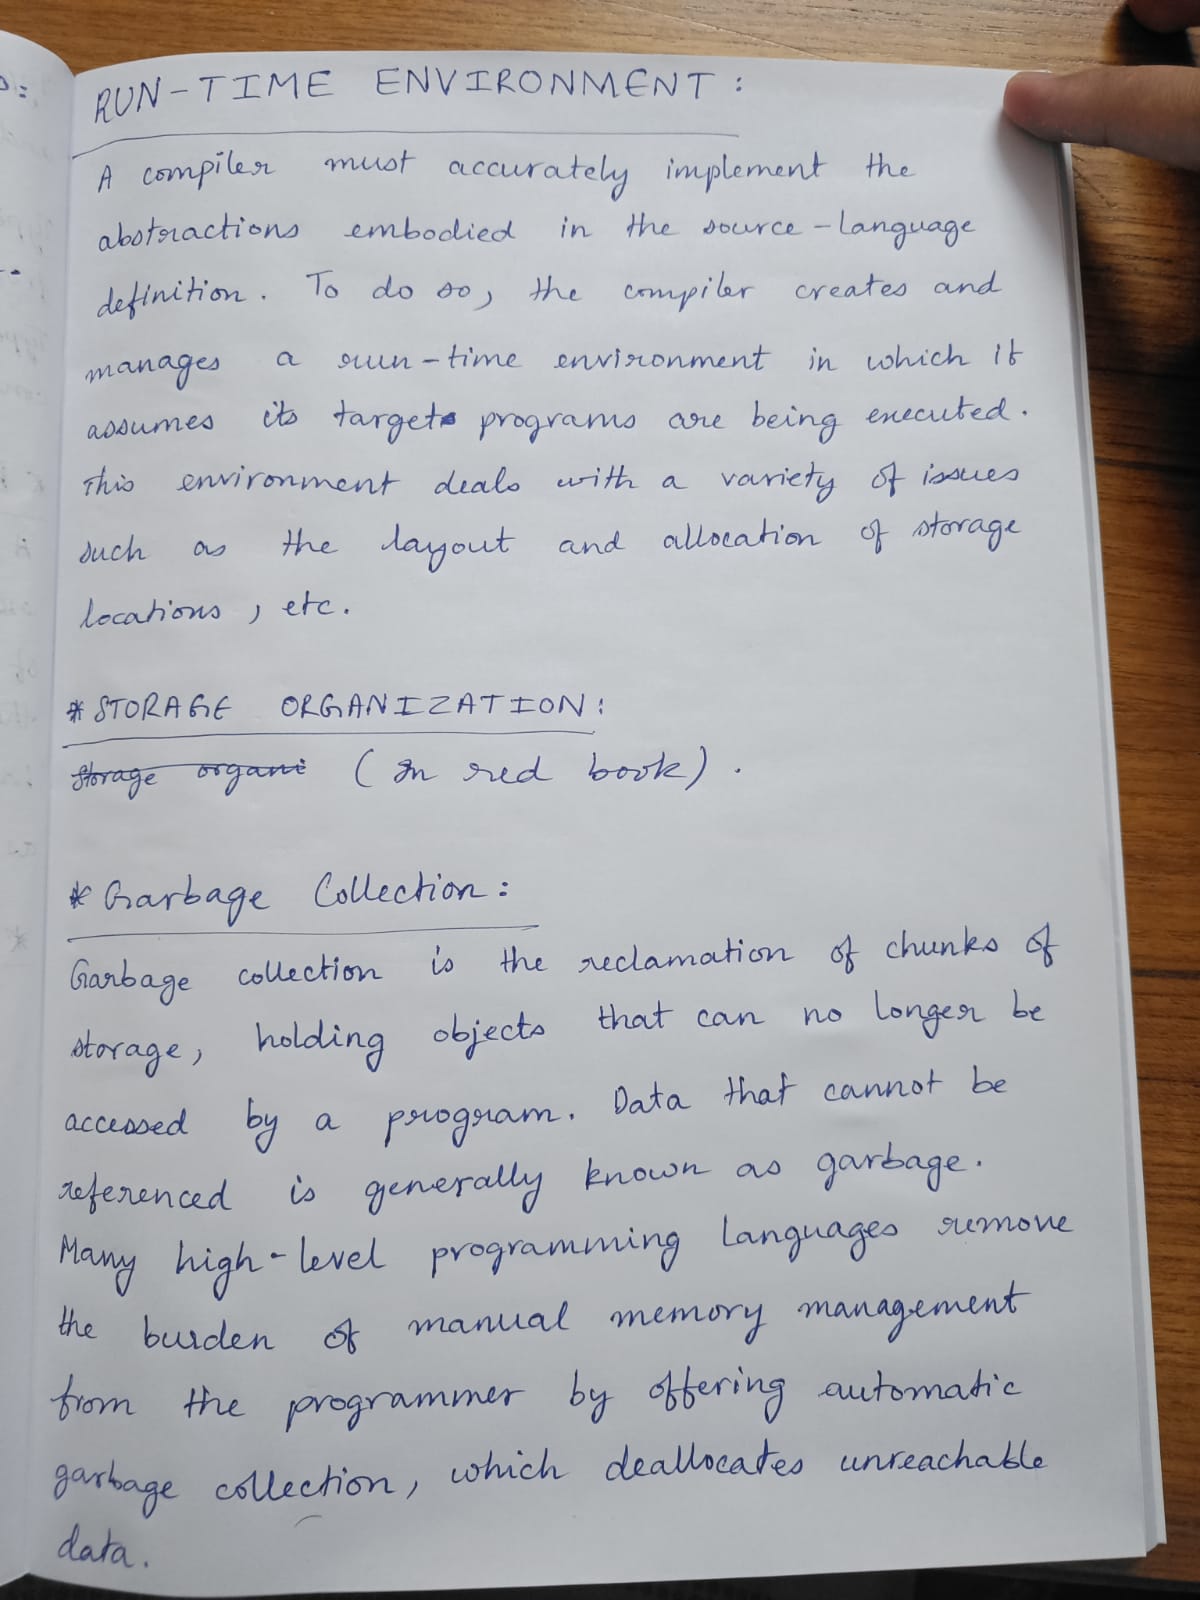 RUN-TIME ENVIRONMENT :
A compiler must accurately implement the
abstractions embodied in the source-language
definition. To do so, the compiler creates and
manages a run-time environment in which it
assumes its target programs are being executed.
This environment deals with a variety of issues
such as the layout and allocation of storage
locations, etc.
* STORAGE ORGANIZATION :
Storage organi (In red book).
* Garbage Collection :
Garbage collection is the reclamation of chunks of
storage, holding objects that can no longer be
accessed by a program. Data that cannot be
referenced is generally known as garbage.
Many high-level programming languages remove
the burden of manual memory management
from the programmer by offering automatic
garbage collection, which deallocates unreachable
data.